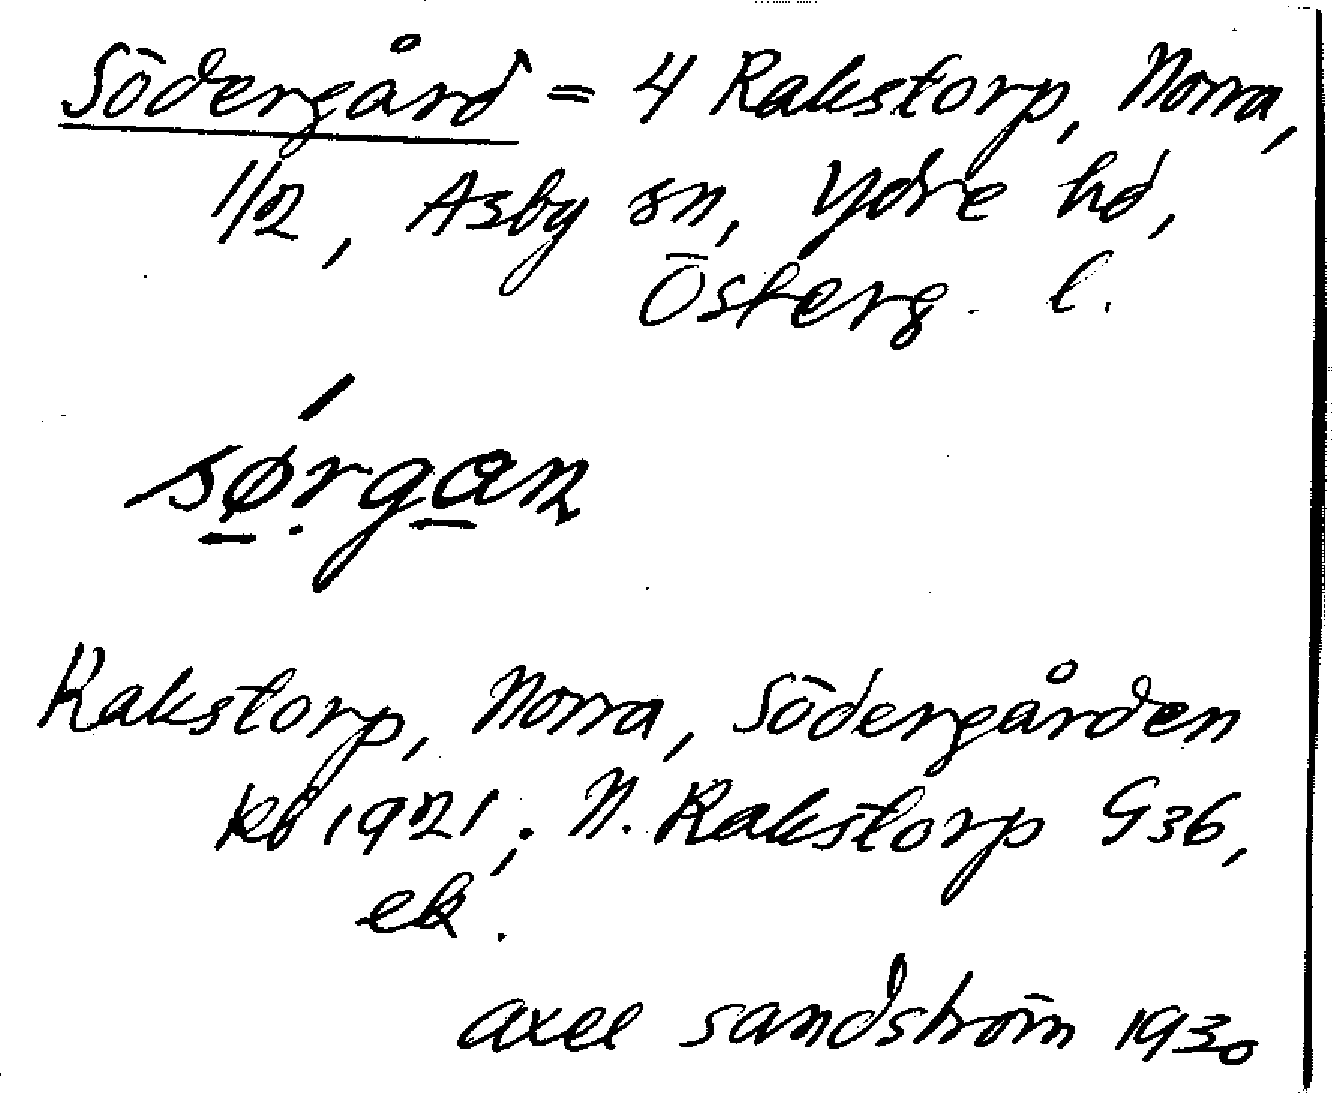 Södergård = 4 Rakstorp, Norra,
1/2, Asby sn, Ydre hd,
Österg. l.
sørgan
Rakstorp, Norra, Södergården
kb 1921; N. Rakstorp G36,
ek.
axel sandström 1930